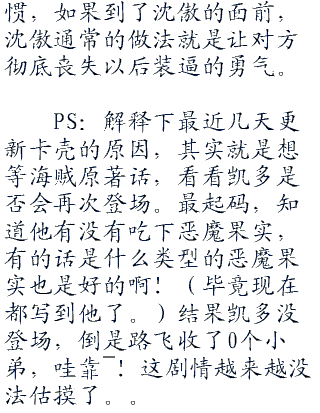 惯，如果到了沈傲的面前，
沈傲通常的做法就是让对方
彻底丧失以后装逼的勇气。
PS：解释下最近几天更
新卡壳的原因，其实就是想
等海贼原著话，看看凯多是
否会再次登场。最起码，知
道他有没有吃下恶魔果实，
有的话是什么类型的恶魔果
实也是好的啊！（毕竟现在
都写到他了。）结果凯多没
登场，倒是路飞收了0个小
弟，哇靠¯！这剧情越来越没
法估摸了。。